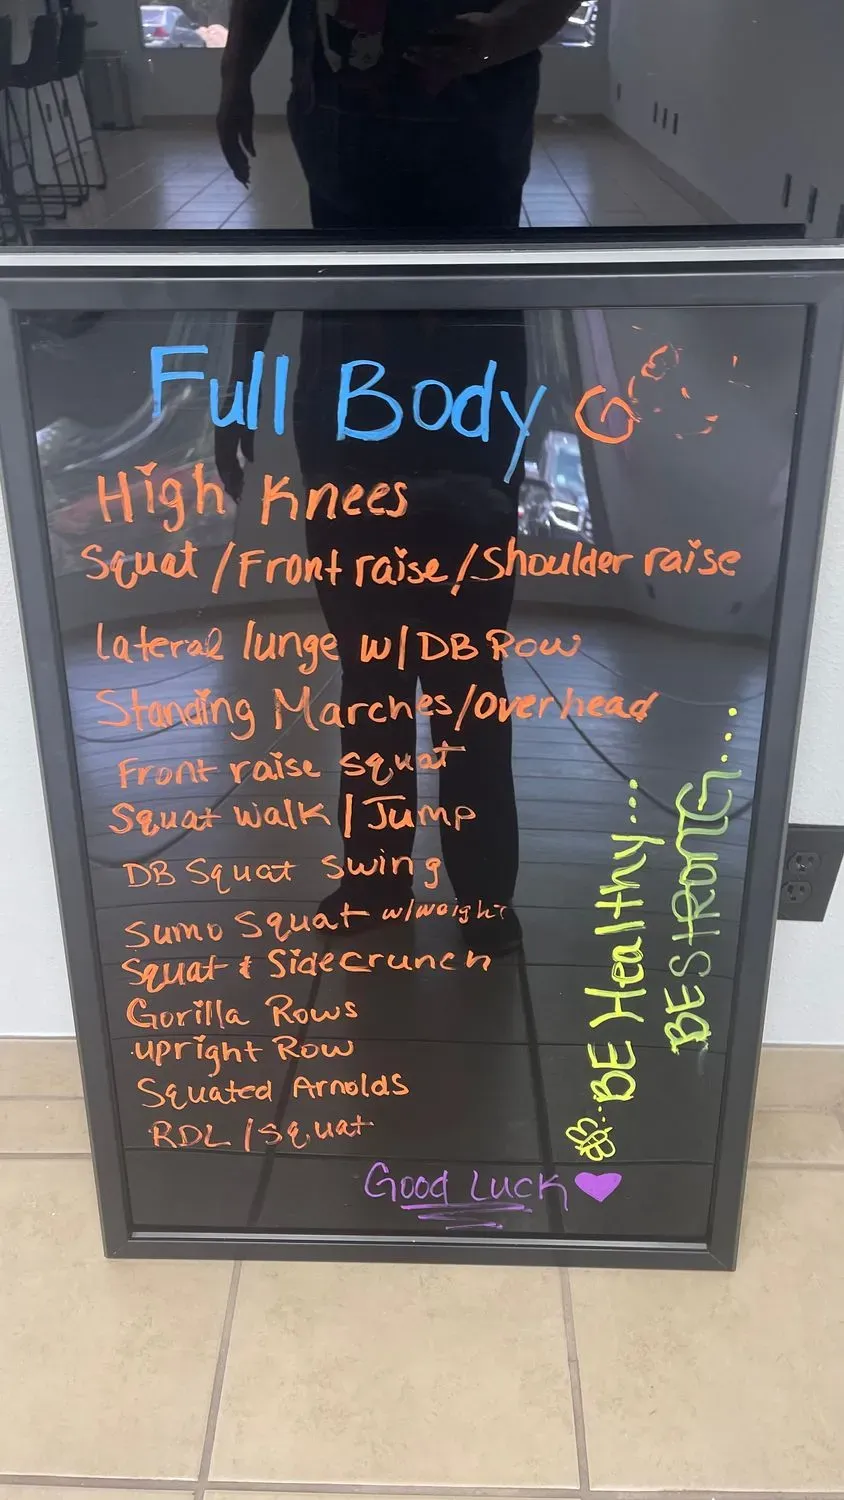 Full Body G
High Knees
Squat / Front raise / Shoulder raise
lateral lunge w/ DB Row
Standing Marches/overhead
Front raise squat
Squat walk / Jump
DB Squat Swing
Sumo Squat w/weight
Squat & Sidecrunch
Gorilla Rows
upright Row
Squated Arnolds
RDL / squat
Good Luck
BE Healthy...
BE STRONG...